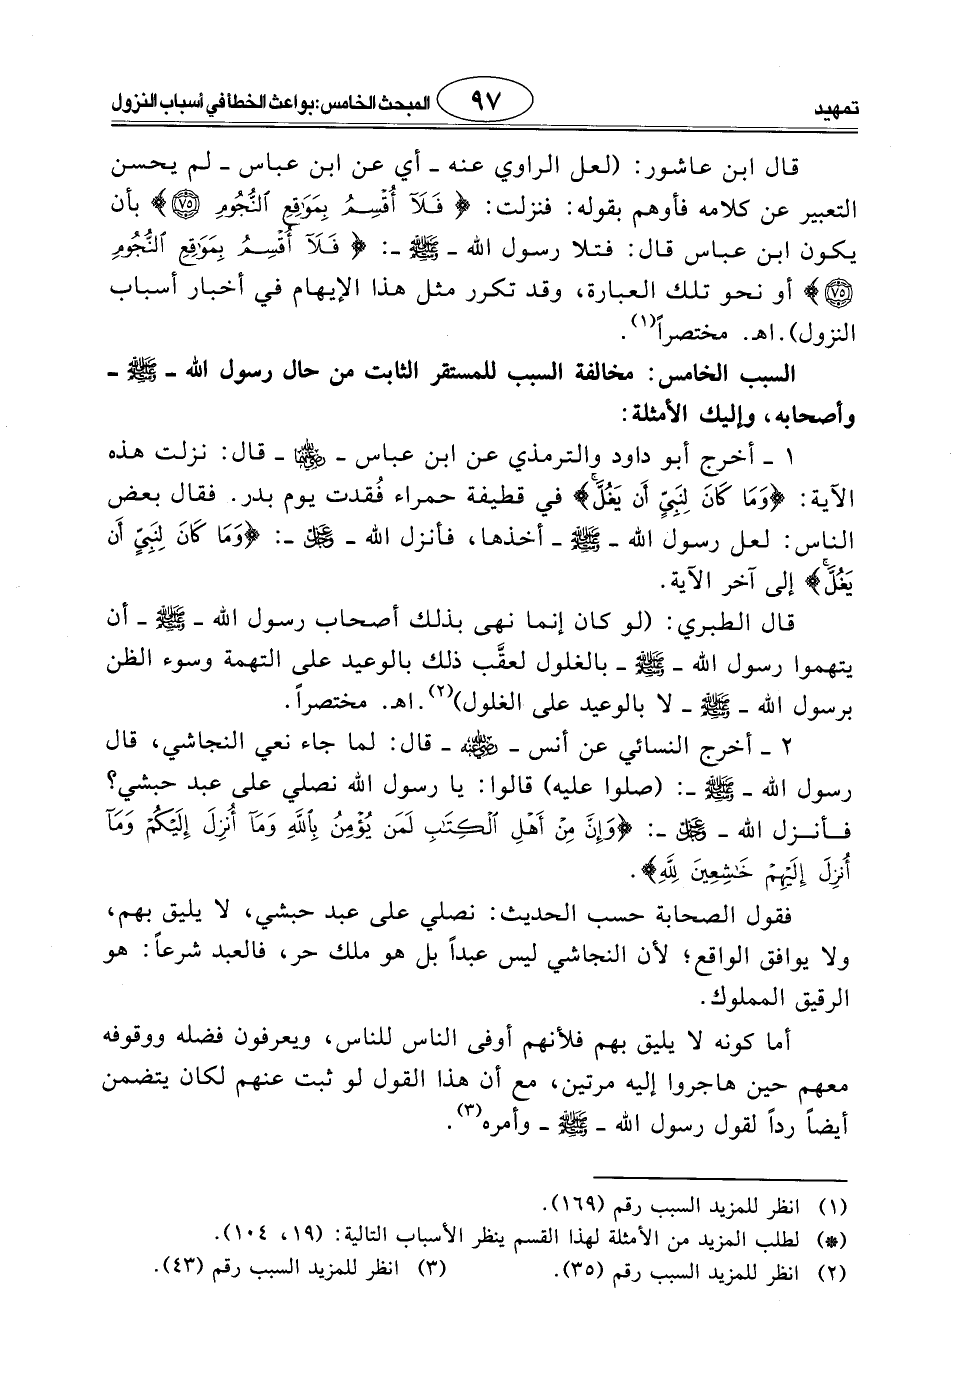 تمهيد ٩٧ المبحث الخامس: بواعث الخطأ في أسباب النزول
قال ابن عاشور: (لعل الراوي عنه ـ أي عن ابن عباس ـ لم يحسن
التعبير عن كلامه فأوهم بقوله: فنزلت: ﴿فَلَآ أُقْسِمُ بِمَوَٰقِعِ ٱلنُّجُومِ ٧٥﴾ بأن
يكون ابن عباس قال: فتلا رسول الله ـ ﷺ ـ: ﴿فَلَآ أُقْسِمُ بِمَوَٰقِعِ ٱلنُّجُومِ
٧٥﴾ أو نحو تلك العبارة، وقد تكرر مثل هذا الإيهام في أخبار أسباب
النزول). اهـ. مختصراً(١).
السبب الخامس: مخالفة السبب للمستقر الثابت من حال رسول الله ـ ﷺ ـ
وأصحابه، وإليك الأمثلة:
١ ـ أخرج أبو داود والترمذي عن ابن عباس ـ رضي الله عنهما ـ قال: نزلت هذه
الآية: ﴿وَمَا كَانَ لِنَبِيٍّ أَن يَغُلَّۚ﴾ في قطيفة حمراء فُقدت يوم بدر. فقال بعض
الناس: لعل رسول الله ـ ﷺ ـ أخذها، فأنزل الله ـ عز وجل ـ: ﴿وَمَا كَانَ لِنَبِيٍّ أَن
يَغُلَّۚ﴾ إلى آخر الآية.
قال الطبري: (لو كان إنما نهى بذلك أصحاب رسول الله ـ ﷺ ـ أن
يتهموا رسول الله ـ ﷺ ـ بالغلول لعقَّب ذلك بالوعيد على التهمة وسوء الظن
برسول الله ـ ﷺ ـ لا بالوعيد على الغلول)(٢). اهـ. مختصراً.
٢ ـ أخرج النسائي عن أنس ـ رضي الله عنه ـ قال: لما جاء نعي النجاشي، قال
رسول الله ـ ﷺ ـ: (صلوا عليه) قالوا: يا رسول الله نصلي على عبد حبشي؟
فأنزل الله ـ عز وجل ـ: ﴿وَإِنَّ مِنْ أَهْلِ ٱلْكِتَٰبِ لَمَن يُؤْمِنُ بِٱللَّهِ وَمَآ أُنزِلَ إِلَيْكُمْ وَمَآ
أُنزِلَ إِلَيْهِمْ خَٰشِعِينَ لِلَّهِ﴾.
فقول الصحابة حسب الحديث: نصلي على عبد حبشي، لا يليق بهم،
ولا يوافق الواقع؛ لأن النجاشي ليس عبداً بل هو ملك حر، فالعبد شرعاً: هو
الرقيق المملوك.
أما كونه لا يليق بهم فلأنهم أوفى الناس للناس، ويعرفون فضله ووقوفه
معهم حين هاجروا إليه مرتين، مع أن هذا القول لو ثبت عنهم لكان يتضمن
أيضاً رداً لقول رسول الله ـ ﷺ ـ وأمره(٣).
(١) انظر للمزيد السبب رقم (١٦٩).
(*) لطلب المزيد من الأمثلة لهذا القسم ينظر الأسباب التالية: (١٩، ١٠٤).
(٢) انظر للمزيد السبب رقم (٣٥). (٣) انظر للمزيد السبب رقم (٤٣).